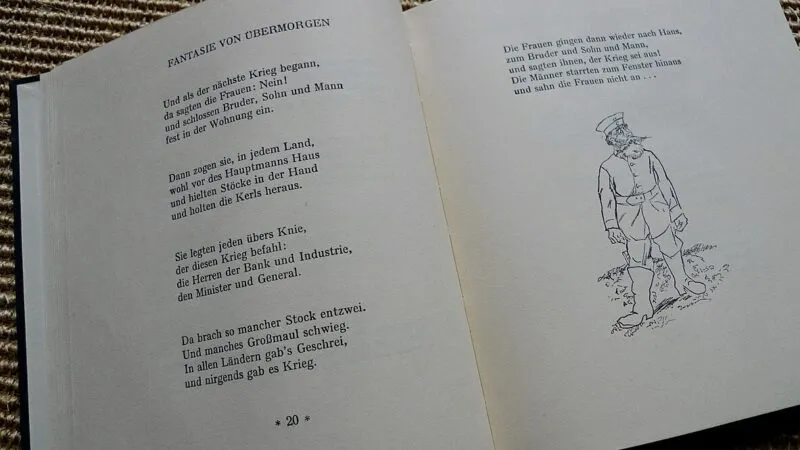 FANTASIE VON ÜBERMORGEN
Und als der nächste Krieg begann,
da sagten die Frauen: Nein!
und schlossen Bruder, Sohn und Mann
fest in der Wohnung ein.
Dann zogen sie, in jedem Land,
wohl vor des Hauptmanns Haus
und hielten Stöcke in der Hand
und holten die Kerls heraus.
Sie legten jeden übers Knie,
der diesen Krieg befahl:
die Herren der Bank und Industrie,
den Minister und General.
Da brach so mancher Stock entzwei.
Und manches Großmaul schwieg.
In allen Ländern gab's Geschrei,
und nirgends gab es Krieg.
* 20 *
Die Frauen gingen dann wieder nach Haus,
zum Bruder und Sohn und Mann,
und sagten ihnen, der Krieg sei aus!
Die Männer starrten zum Fenster hinaus
und sahn die Frauen nicht an . . .